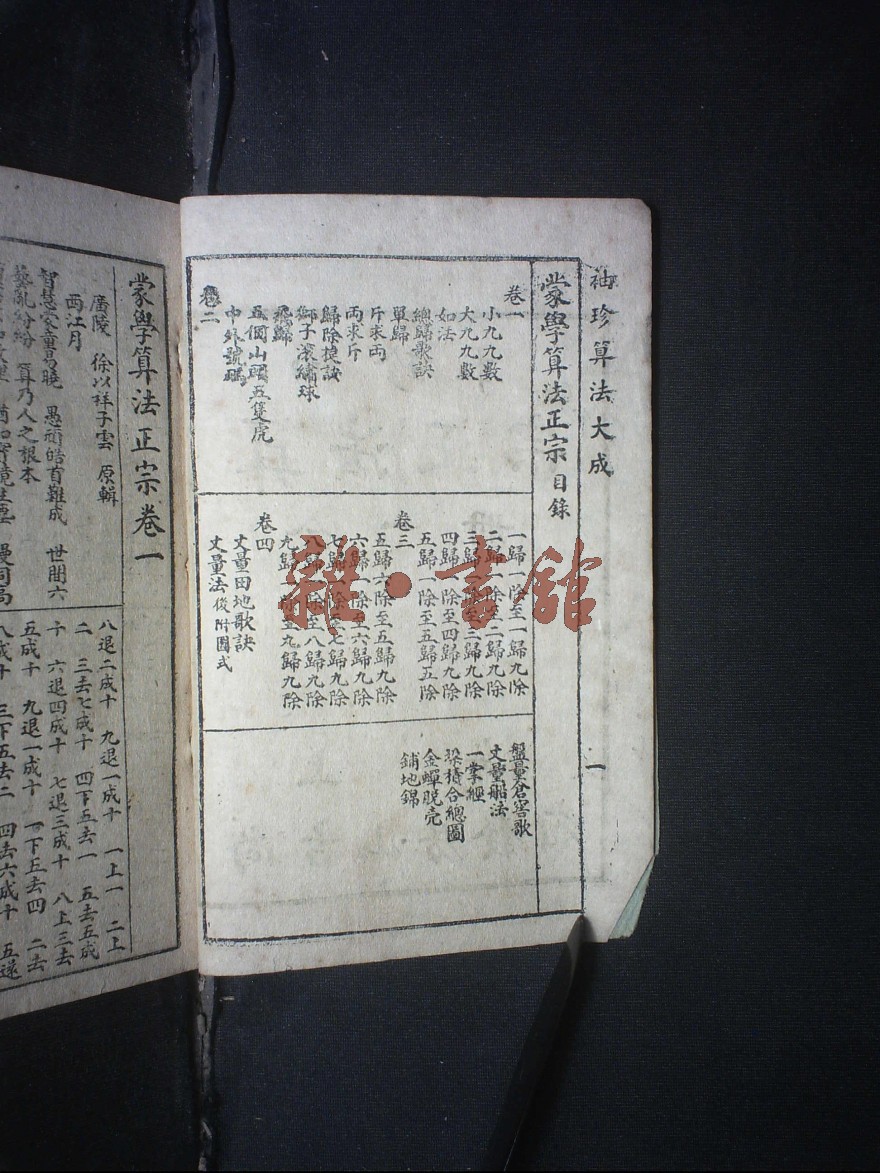 袖珍算法大成
一
蒙學算法正宗目錄
卷一
小九九數
大九九數
如法
總歸歌訣
單歸
斤求兩
兩求斤
歸除捷訣
獅子滾繡球
飛歸
五個山頭五隻虎
中外號碼
卷二
一歸一除至一歸九除
二歸一除至二歸九除
三歸一除至三歸九除
四歸一除至四歸九除
五歸一除至五歸五除
卷三
五歸六除至五歸九除
六歸一除至六歸九除
七歸一除至七歸九除
八歸一除至八歸九除
九歸一除至九歸九除
卷四
丈量田地歌訣
丈量法後附圖式
盤量倉窖歌
丈量船法
一掌經
垛積合總圖
金蟬脱壳
鋪地錦
雜·書館
蒙學算法正宗卷一
廣陵 徐以祥子雲 原輯
西江月
智慧蒙童易曉 愚頑皓首難成 世間六
藝亂紛紛 算乃人之根本
八退二成十 九退一成十 一上一 二上
二 三去七成十 四下五去一 五去五成
十 六退四成十 七退三成十 八上三去
五成十 九退一成十 一下五去四 二去
八成十 三下五去二 四去六成十 五逐